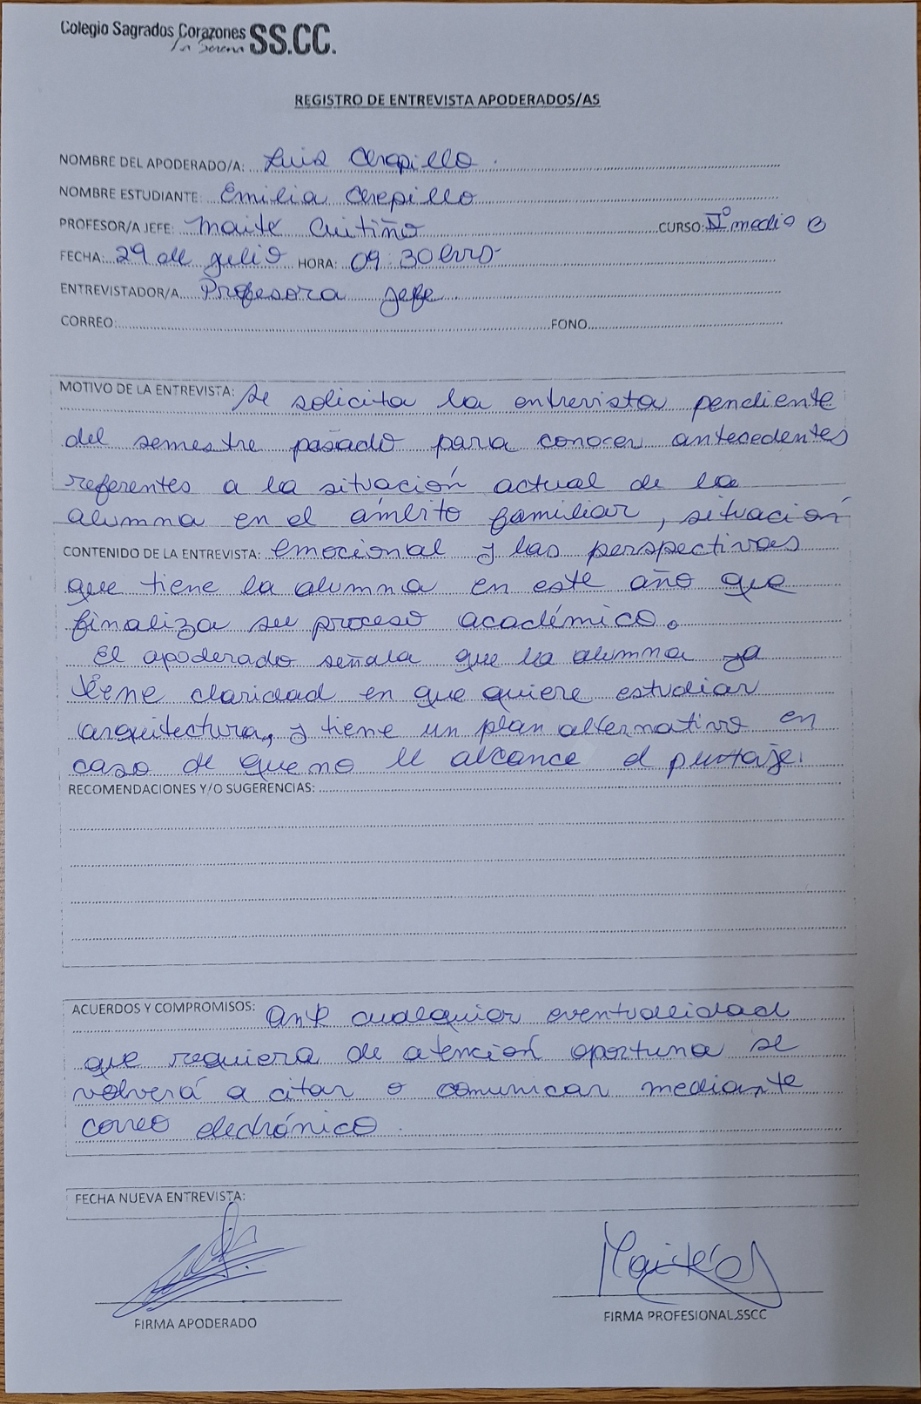 Colegio Sagrados Corazones SS.CC.
La Serena
REGISTRO DE ENTREVISTA APODERADOS/AS
NOMBRE DEL APODERADO/A: Luis
NOMBRE ESTUDIANTE: Emilia
PROFESOR/A JEFE: Maite Cuitiño CURSO: medio B
FECHA: 29 de julio HORA: 09:30 hrs
ENTREVISTADOR/A Profesora jefe
CORREO: FONO
MOTIVO DE LA ENTREVISTA: Se solicita la entrevista pendiente
del semestre pasado para conocer antecedentes
referentes a la situación actual de la
alumna en el ámbito familiar, situación
CONTENIDO DE LA ENTREVISTA: emocional y las perspectivas
que tiene la alumna en este año que
finaliza su proceso académico.
El apoderado señala que la alumna ya
tiene claridad en que quiere estudiar
arquitectura, y tiene un plan alternativo en
caso de que no le alcance el puntaje.
RECOMENDACIONES Y/O SUGERENCIAS:
ACUERDOS Y COMPROMISOS: Ante cualquier eventualidad
que requiera de atención oportuna se
volverá a citar o comunicar mediante
correo electrónico.
FECHA NUEVA ENTREVISTA:
FIRMA APODERADO FIRMA PROFESIONAL SSCC